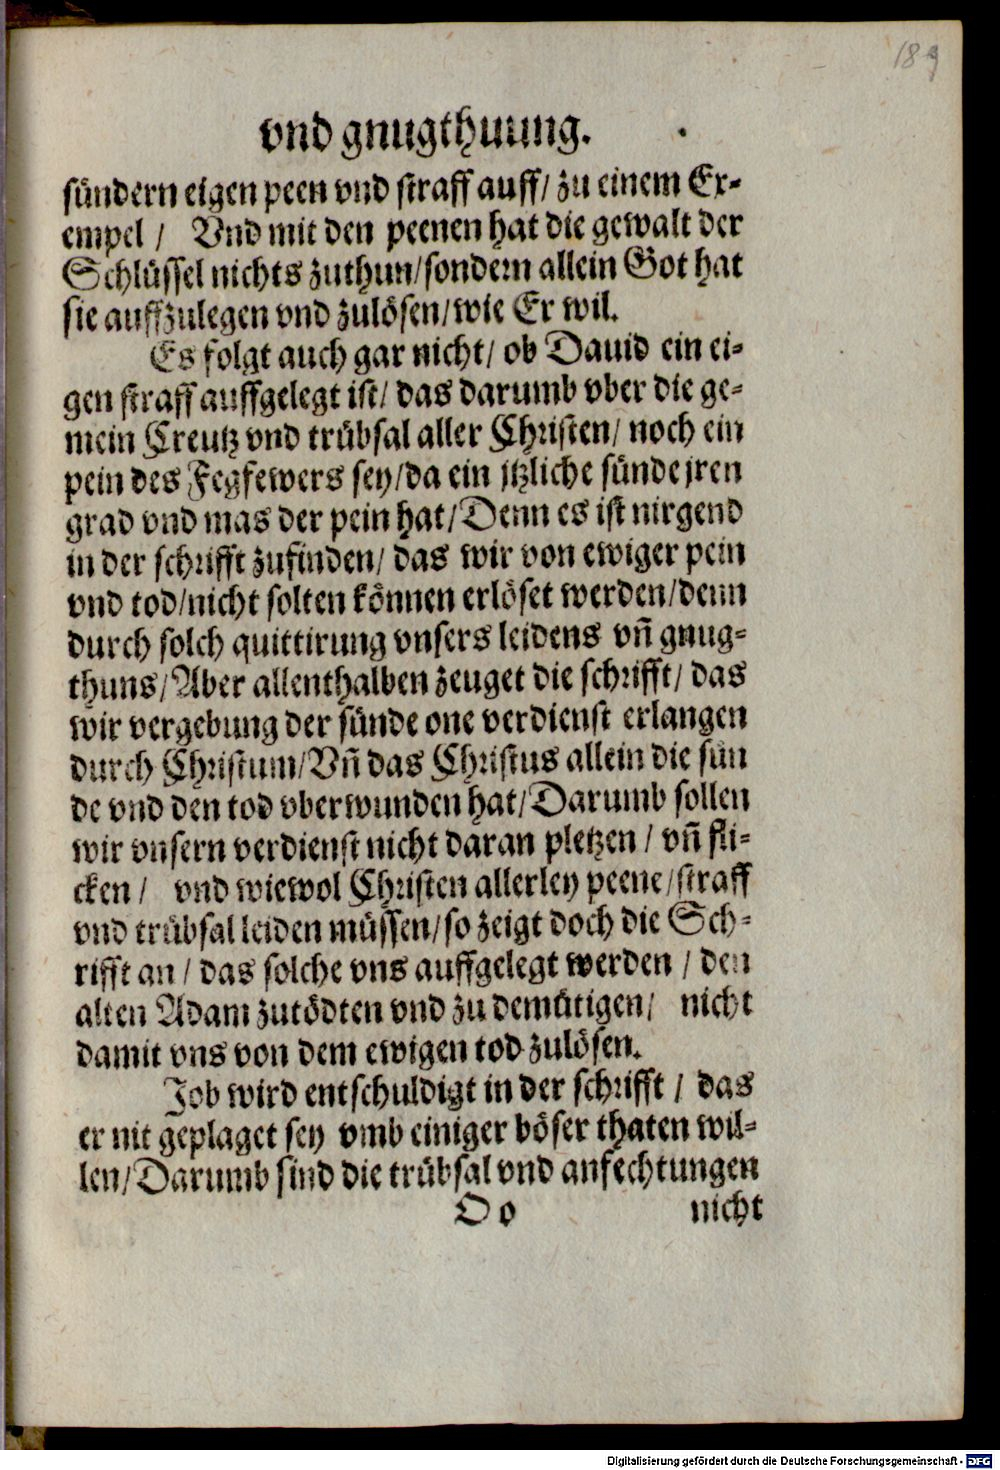 189
vnd gnugthuung.
sündern eigen peen vnd straff auff/ zu einem Ex-
empel / Vnd mit den peenen hat die gewalt der
Schlüssel nichts zuthun/sondern allein Got hat
sie auffzulegen vnd zulösen/wie Er wil.
Es folgt auch gar nicht/ ob Dauid ein ei-
gen straff auffgelegt ist/ das darumb vber die ge-
mein Creutz vnd trübsal aller Christen/ noch ein
pein des Fegfewers sey/da ein jtzliche sünde jren
grad vnd mas der pein hat/Denn es ist nirgend
in der schrifft zufinden/ das wir von ewiger pein
vnd tod/nicht solten können erlöset werden/denn
durch solch quittirung vnsers leidens vn̄ gnug-
thuns/Aber allenthalben zeuget die schrifft/ das
wir vergebung der sünde one verdienst erlangen
durch Christum/Vn̄ das Christus allein die sün
de vnd den tod vberwunden hat/Darumb sollen
wir vnsern verdienst nicht daran pletzen / vn̄ fli-
cken / vnd wiewol Christen allerley peene/straff
vnd trübsal leiden müssen/so zeigt doch die Sch-
rifft an / das solche vns auffgelegt werden / den
alten Adam zutödten vnd zu demütigen/ nicht
damit vns von dem ewigen tod zulösen.
Job wird entschuldigt in der schrifft / das
er nit geplaget sey vmb einiger böser thaten wil-
len/Darumb sind die trübsal vnd anfechtungen
Oo nicht
Digitalisierung gefördert durch die Deutsche Forschungsgemeinschaft - DFG